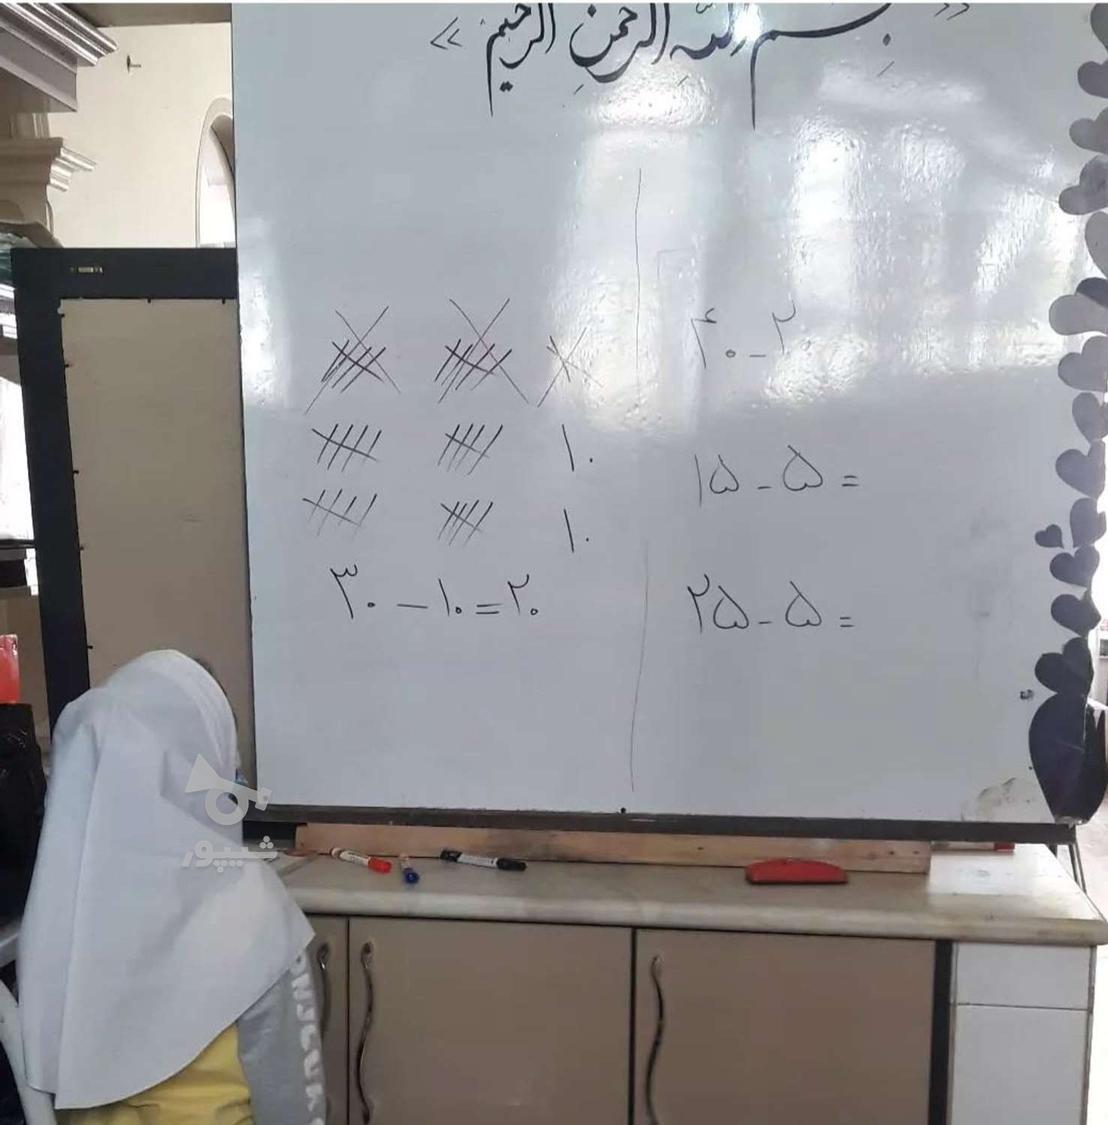 « بسم الله الرحمن الرحیم »
۴۰ - ۲
۱۰
۱۵ - ۵ =
۱۰
۳۰ - ۱۰ = ۲۰
۲۵ - ۵ =
شیپور